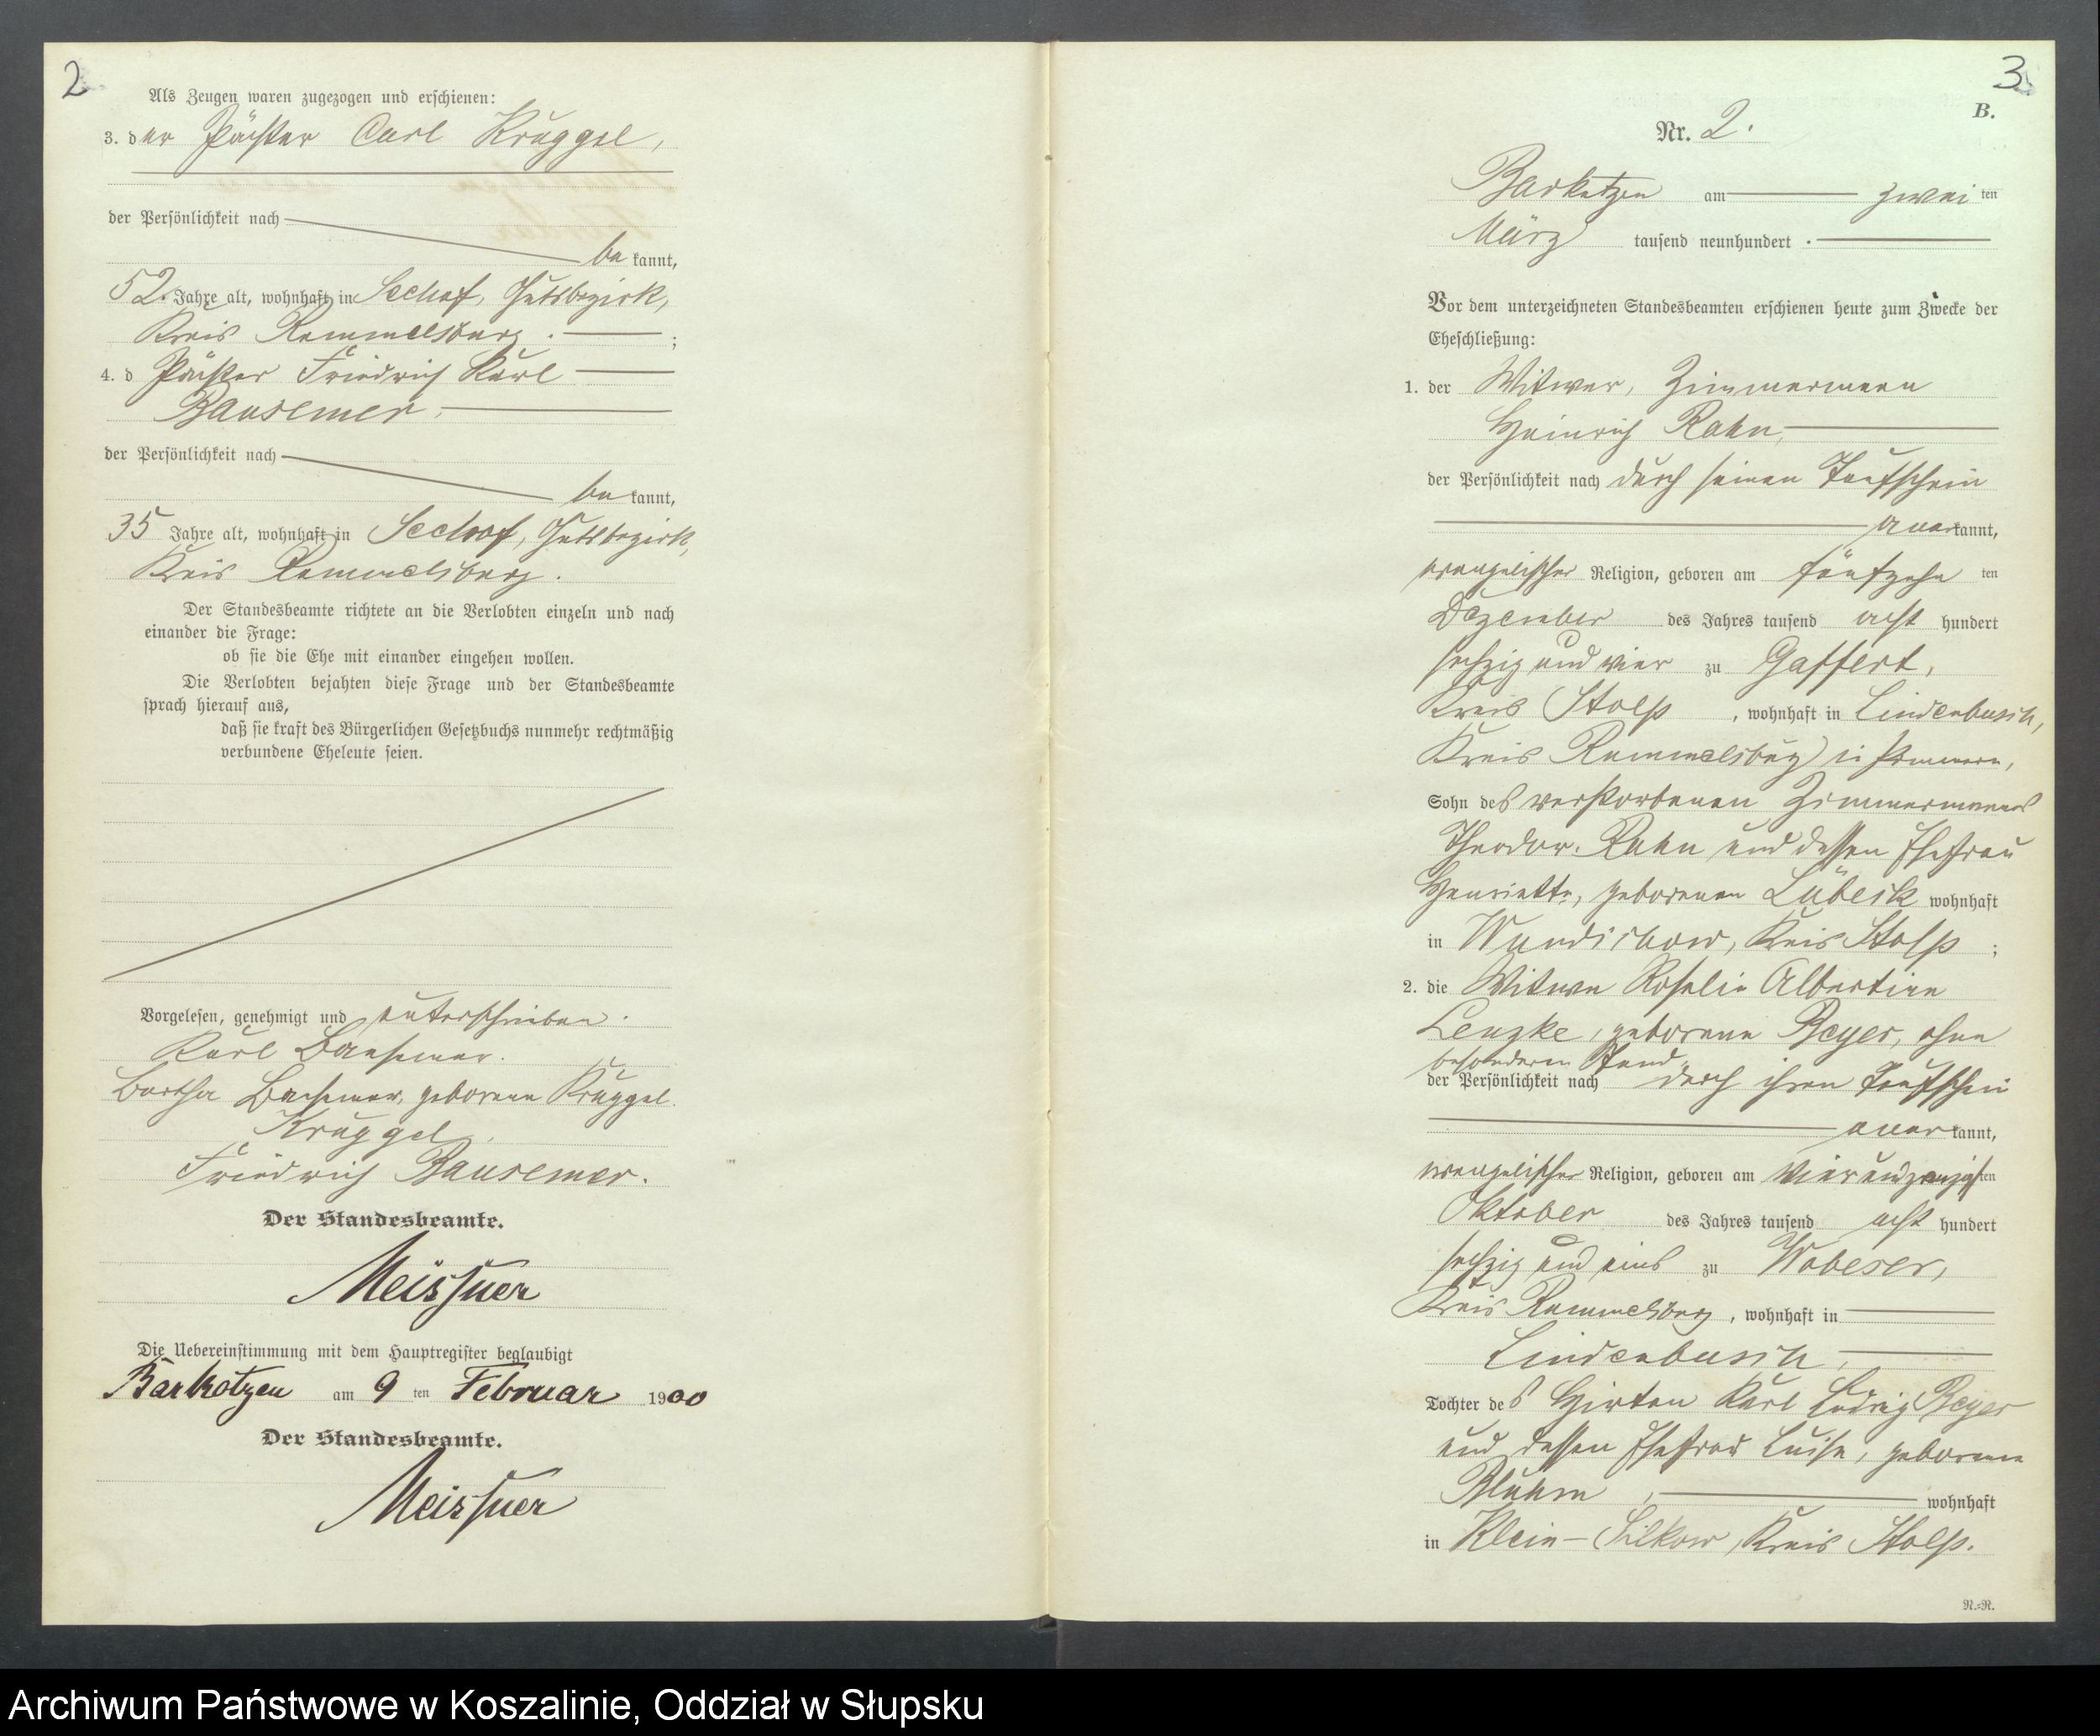 2
Als Zeugen waren zugezogen und erschienen:
3. der Pächter Carl Kruggel,
der Persönlichkeit nach
be kannt,
52 Jahre alt, wohnhaft in Seehof, Gutsbezirk,
Kreis Rummelsburg. ;
4. d Pächter Friedrich Karl
Bansemer,
der Persönlichkeit nach
be kannt,
35 Jahre alt, wohnhaft in Seehof, Gutsbezirk,
Kreis Rummelsburg.
Der Standesbeamte richtete an die Verlobten einzeln und nach
einander die Frage:
ob sie die Ehe mit einander eingehen wollen.
Die Verlobten bejahten diese Frage und der Standesbeamte
sprach hierauf aus,
daß sie kraft des Bürgerlichen Gesetzbuchs nunmehr rechtmäßig
verbundene Eheleute seien.
Vorgelesen, genehmigt und unterschrieben.
Karl Bansemer.
Bertha Bansemer, geborene Kruggel.
Kruggel.
Friedrich Bansemer.
Der Standesbeamte.
Meissner
Die Uebereinstimmung mit dem Hauptregister beglaubigt
Barkotzen am 9 ten Februar 1900
Der Standesbeamte.
Meissner
3
B.
Nr. 2.
Barkotzen am zwei ten
März tausend neunhundert .
Vor dem unterzeichneten Standesbeamten erschienen heute zum Zwecke der
Eheschließung:
1. der Witwer, Zimmermann
Heinrich Rahn,
der Persönlichkeit nach durch seinen Taufschein
aner kannt,
evangelischer Religion, geboren am fünfzehn ten
Dezember des Jahres tausend acht hundert
sechzig und vier zu Gaffert,
Kreis Stolp , wohnhaft in Lindenbusch,
Kreis Rummelsburg in Pommern,
Sohn des verstorbenen Zimmermanns
Theodor Rahn und dessen Ehefrau
Henriette, geborenen Lübeck wohnhaft
in Wundichow, Kreis Stolp ;
2. die Witwe Rosalie Albertine
Lenzke, geborene Beyer, ohne
besonderen Stand,
der Persönlichkeit nach durch ihren Taufschein
aner kannt,
evangelischer Religion, geboren am vierundzwanzigsten
Oktober des Jahres tausend acht hundert
sechzig und eins zu Wobeser,
Kreis Rummelsburg , wohnhaft in
Lindenbusch,
Tochter des Hirten Karl Ludwig Beyer
und dessen Ehefrau Luise, geborene
Bluhm , wohnhaft
in Klein-Silkow, Kreis Stolp.
R.=R.
Archiwum Państwowe w Koszalinie, Oddział w Słupsku